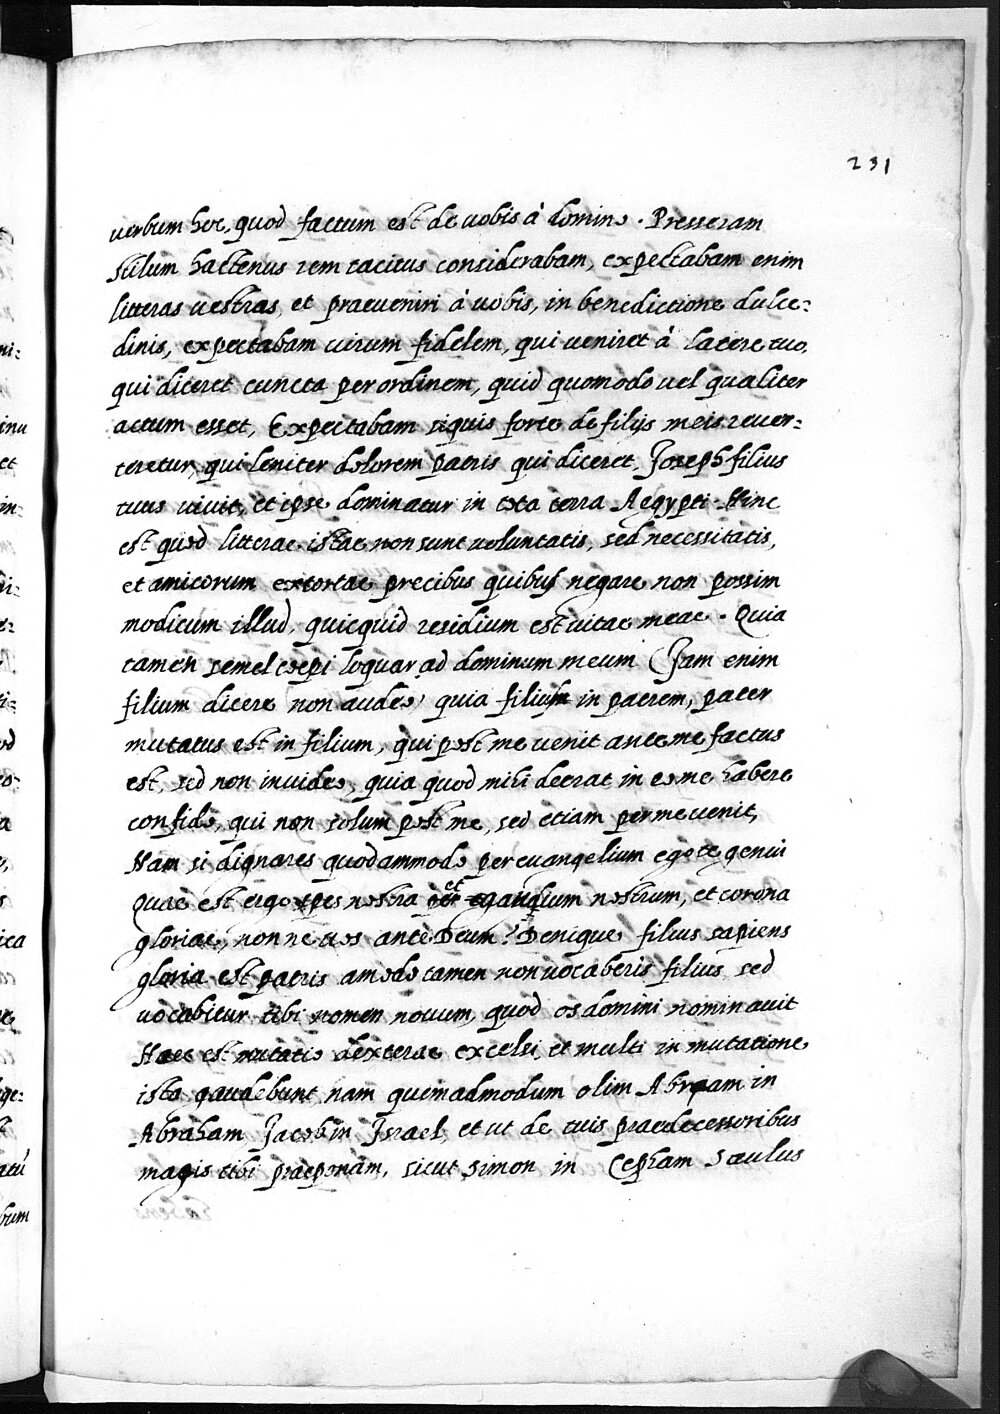 231
verbum hoc, quod factum est de vobis à domino. Presseram
stilum hactenus rem tacitus considerabam, expectabam enim
litteras vestras, et praeveniri à vobis, in benedictione dulce:
dinis, expectabam virum fidelem, qui veniret à latere tuo,
qui diceret cuncta per ordinem, quid quomodo vel qualiter
actum esset, Expectabam siquis forte de filijs meis rever:
teretur, qui leniter dolorem patris qui diceret, Joseph filius
tuus vivit, et ipse dominatur in tota terra Aegypti. Hinc
est quod litterae istae non sunt voluntatis, sed necessitatis,
et amicorum extortae precibus quibus negare non possim
modicum illud, quicquid residium est vitae meae. Quia
tamen semel coepi loquar ad dominum meum (Jam enim
filium dicere non audeo) quia filius in patrem, pater
mutatus est in filium, qui post me venit ante me factus
est, sed non invideo, quia quod mihi deerat in eo me habere
confido, qui non solum post me, sed etiam per me venit,
Nam si dignares quodammodo per evangelium ego te genui
Quae est ergo spes nostra et gaudium nostrum, et corona
gloriae, nonne tu es ante Deum? Denique filius sapiens
gloria est patris amodo tamen non vocaberis filius sed
vocabitur tibi nomen novum, quod os domini nominavit
Haec est mutatio dexterae excelsi, et multi in mutatione
ista gaudebunt, nam quemadmodum olim Abraam in
Abraham Jacob in Israel, et ut de tuis praedecessoribus
magis tibi praeponam, sicut Simon in Cepham Saulus